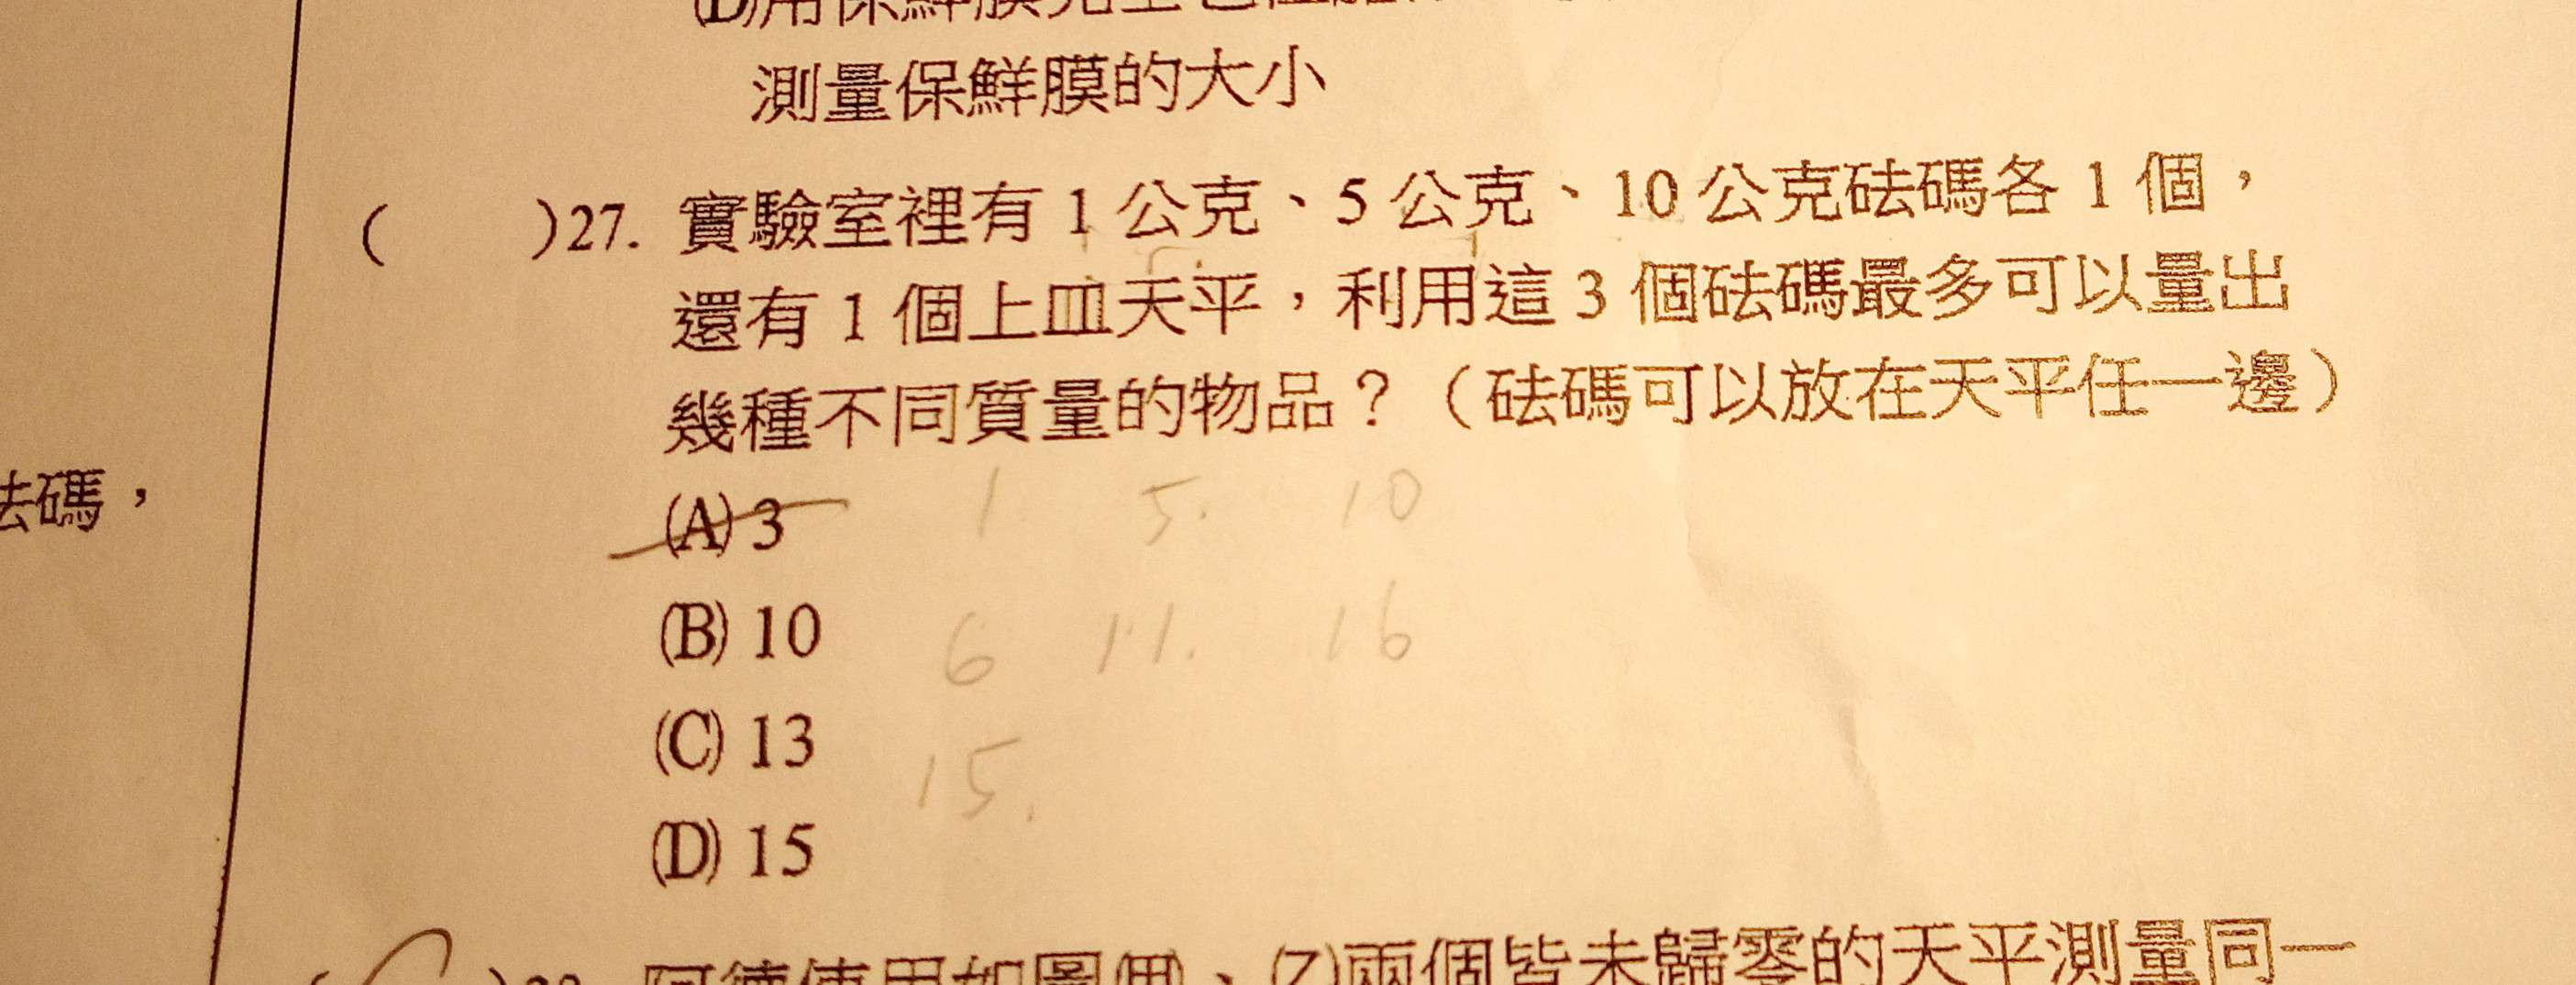 測量保鮮膜的大小
( )27. 實驗室裡有 1 公克、5 公克、10 公克砝碼各 1 個，
還有 1 個上皿天平，利用這 3 個砝碼最多可以量出
幾種不同質量的物品？（砝碼可以放在天平任一邊）
砝碼，
(A) 3 1 5. 10
(B) 10 6 11. 16
(C) 13
15.
(D) 15
兩個皆未歸零的天平測量同一